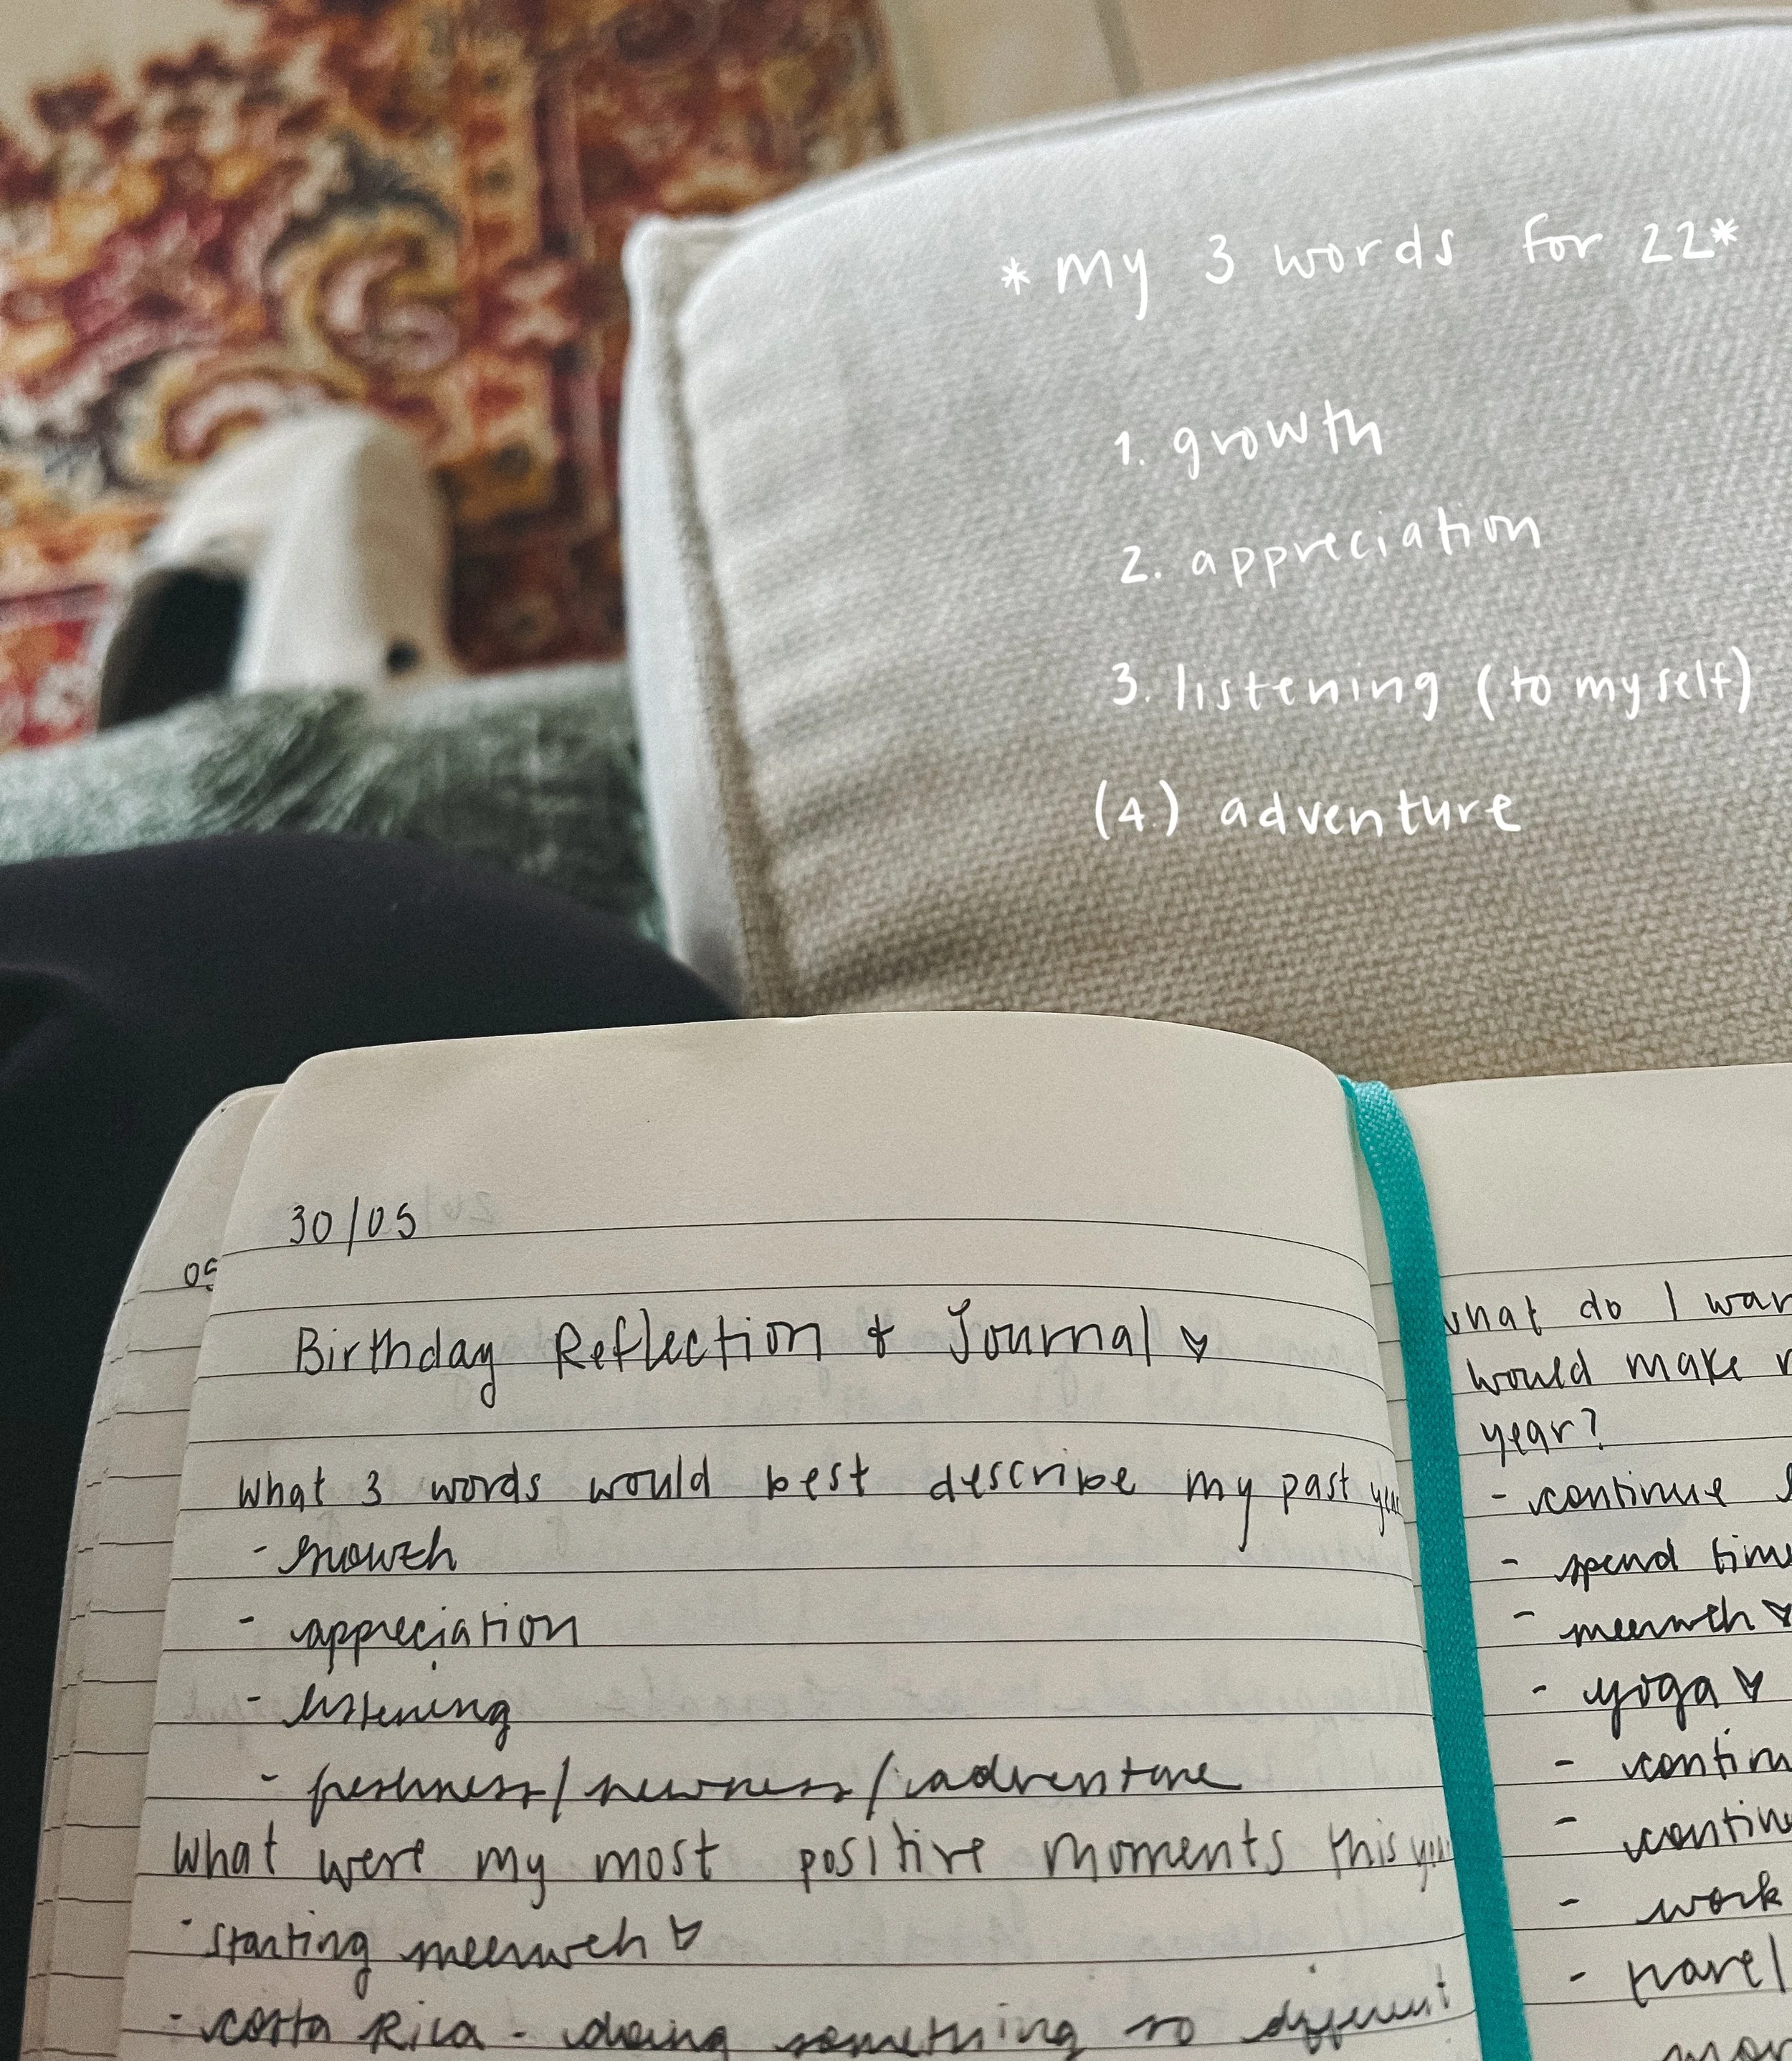 *my 3 words for 22*
1. growth
2. appreciation
3. listening (to myself)
(4.) adventure
30/05
05
Birthday Reflection + Journal ♥
What 3 words would best describe my past year
- growth
- appreciation
- listening
- freshness/newness/adventure
What were my most positive moments this year
- starting meerweh ♥
- costa Rica - doing something so different
what do I wan
would make
year?
- continue
- spend time
- meerweh ♥
- yoga ♥
- contin
- contin
- work
- travel